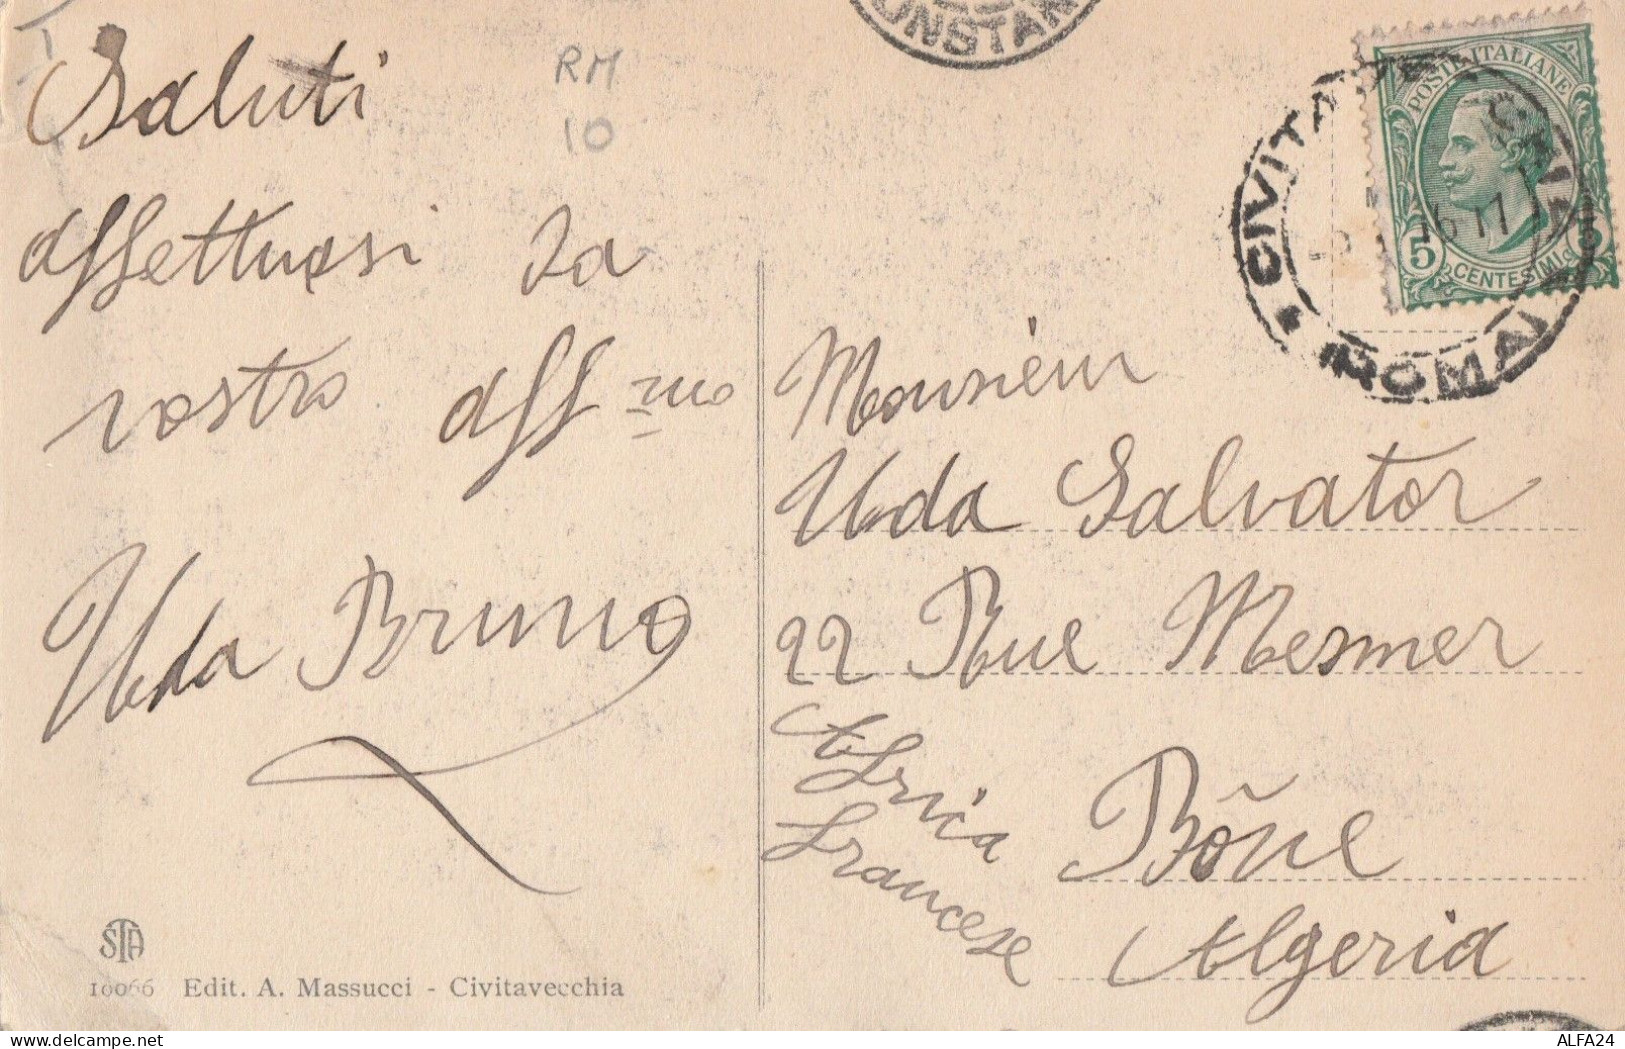 Saluti
affettuosi da
vostro aff mo
Uda Bruno
RM
10
STA
10066 Edit. A. Massucci - Civitavecchia
POSTE ITALIANE
5 CENTESIMI 5
ROMA
Monsieur
Uda Salvator
22 Rue Mesmer
Africa
Francese
Bône
Algeria
ALFA24